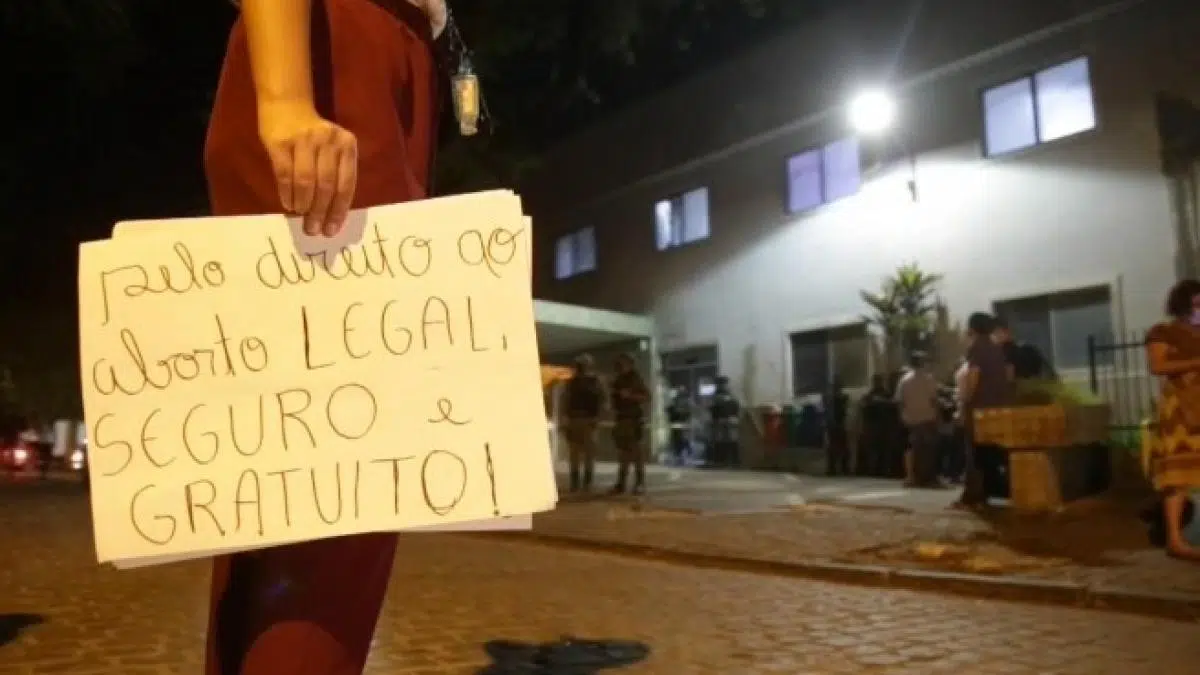 pelo direito ao
aborto LEGAL,
SEGURO e
GRATUITO!